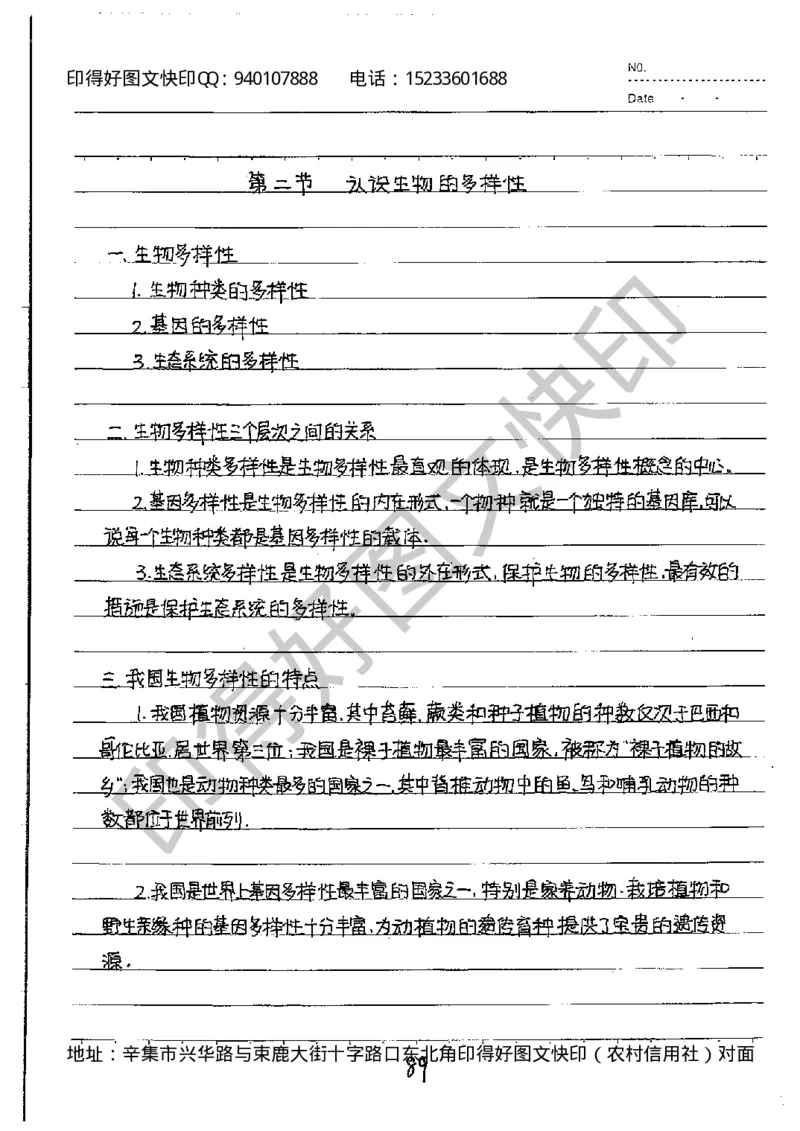 印得好图文快印QQ：940107888 电话：15233601688
No.
Date
第二节 认识生物的多样性
一、生物多样性
1. 生物种类的多样性
2. 基因的多样性
3. 生态系统的多样性
二、生物多样性三个层次之间的关系
1. 生物种类多样性是生物多样性最直观的体现，是生物多样性概念的中心。
2. 基因多样性是生物多样性的内在形式，一个物种就是一个独特的基因库，可以
说每一个生物种类都是基因多样性的载体.
3. 生态系统多样性是生物多样性的外在形式，保护生物的多样性，最有效的
措施是保护生态系统的多样性。
三、我国生物多样性的特点
1. 我国植物资源十分丰富，其中苔藓、蕨类和种子植物的种数仅次于巴西和
哥伦比亚，居世界第三位；我国是裸子植物最丰富的国家，被称为“裸子植物的故
乡”；我国也是动物种类最多的国家之一，其中脊椎动物中的鱼、鸟和哺乳动物的种
数都位于世界前列.
2. 我国是世界上基因多样性最丰富的国家之一，特别是家养动物、栽培植物和
野生亲缘种的基因多样性十分丰富，为动植物的遗传育种提供了宝贵的遗传资
源.
地址：辛集市兴华路与束鹿大街十字路口东北角印得好图文快印（农村信用社）对面
89
印得好图文快印